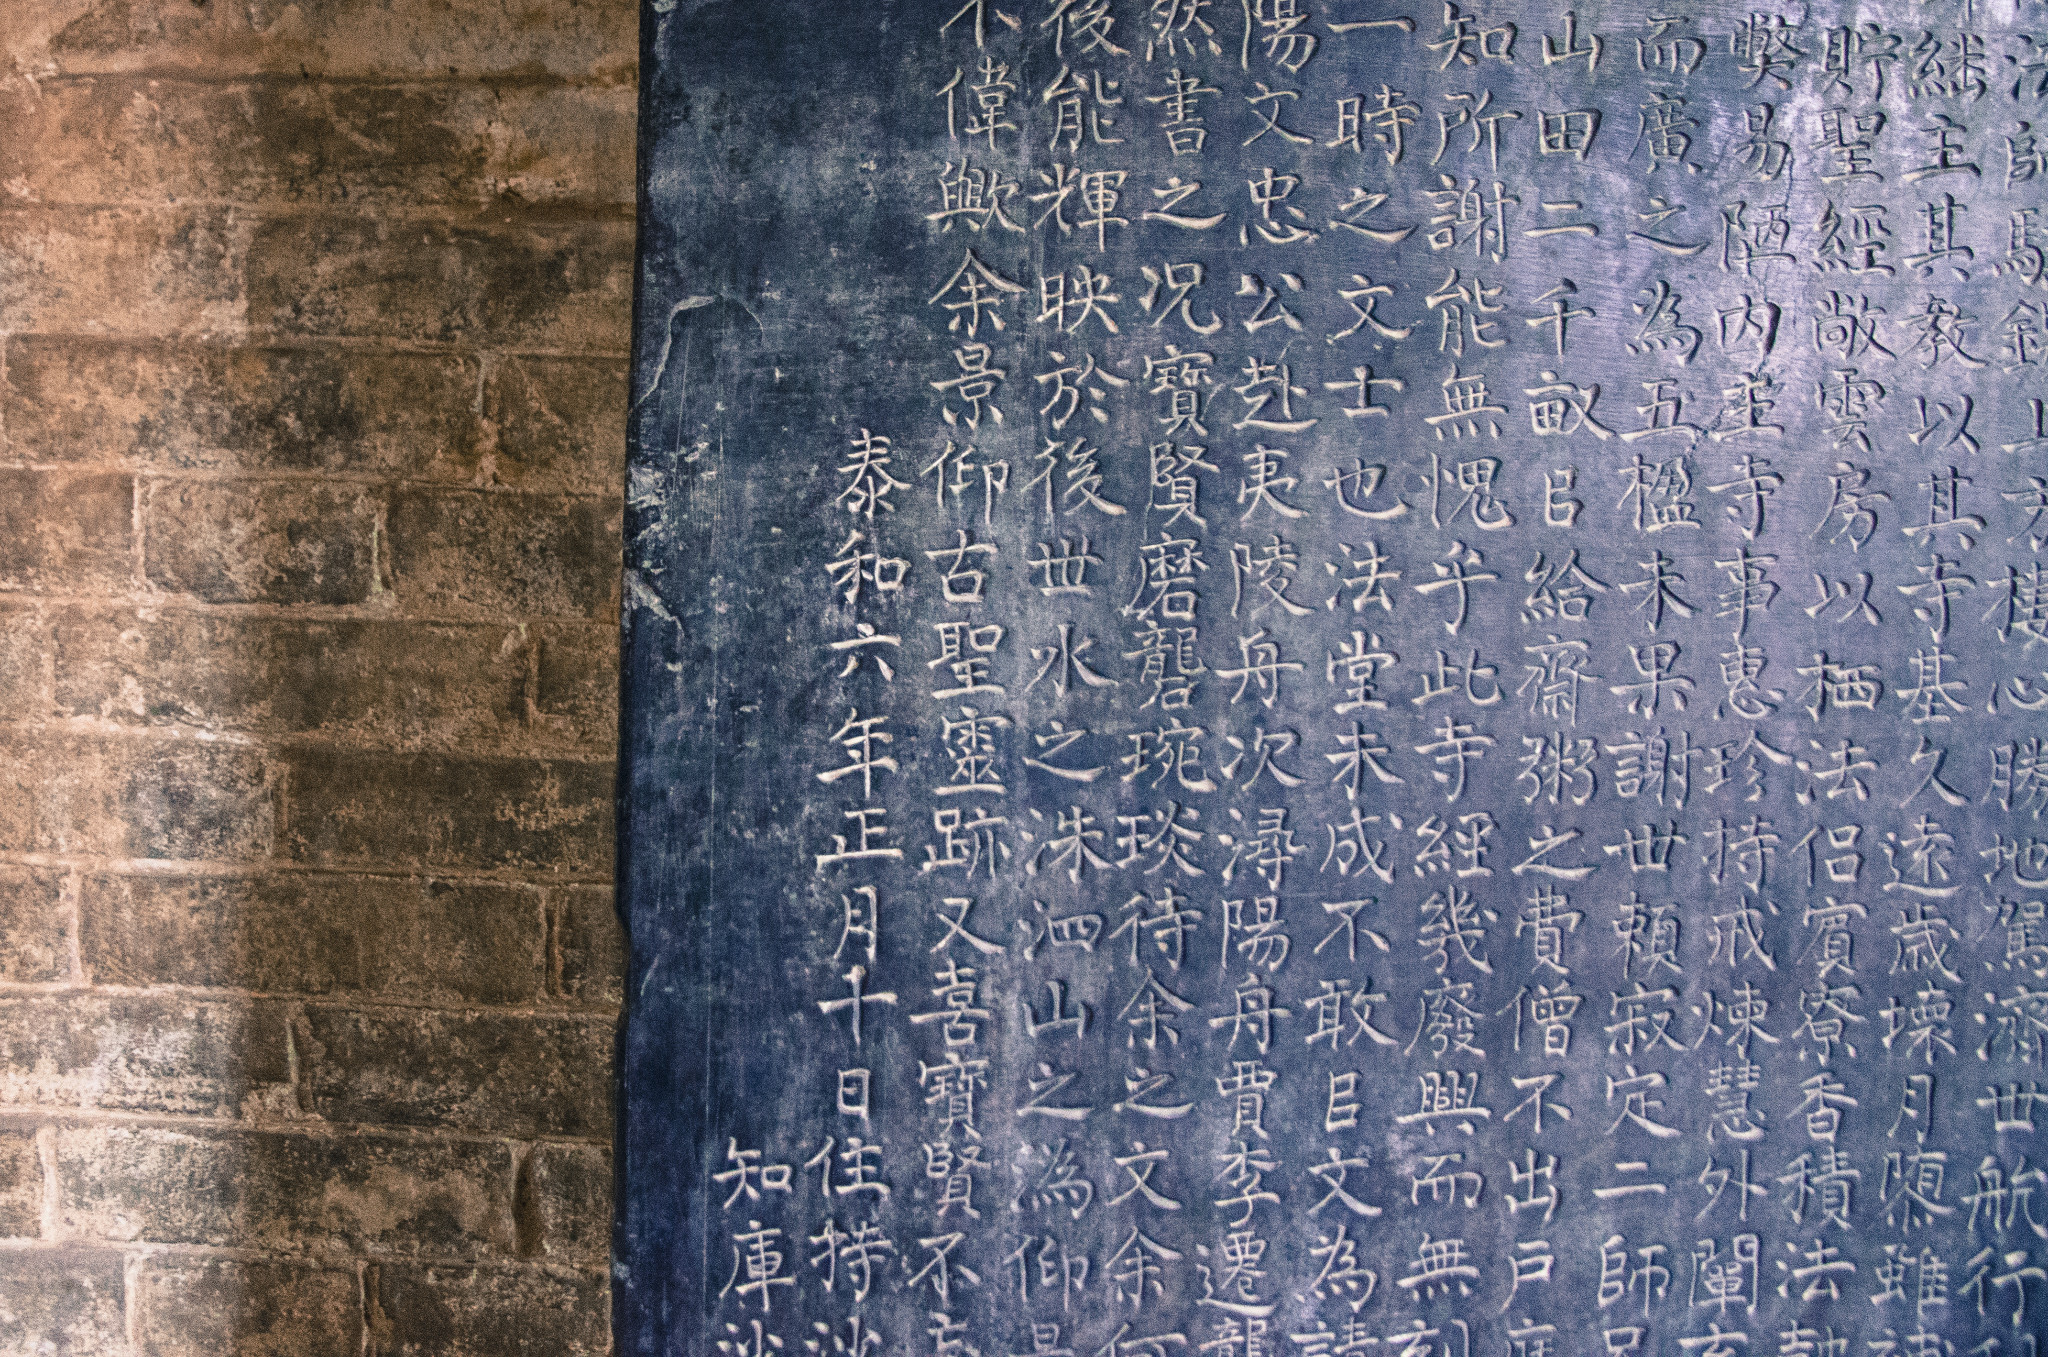 法師馭錫上方棲心勝地駕濟世航行
継主其教以其寺基久遠歲壞月隳雖
貯聖經敞雲房以栖法侶賓寮香積法
弊易陋內塋寺事惠珍持戒煉慧外闡
而廣之為五楹未果謝世賴寂定二師
山田二千畝㠯給齋粥之費僧不出戶
知所謝能無愧乎此寺經幾廢興而無
一時之文士也法堂未成不敢㠯文為請
陽文忠公赴夷陵舟次潯陽舟賈李遷
然書之况寶賢磨礲琬琰待余之文余何
後能輝映於後世水之洙泗山之為仰
不偉歟余景仰古聖靈跡又喜寶賢不忘
泰和六年正月十日住持沙
知庫沙